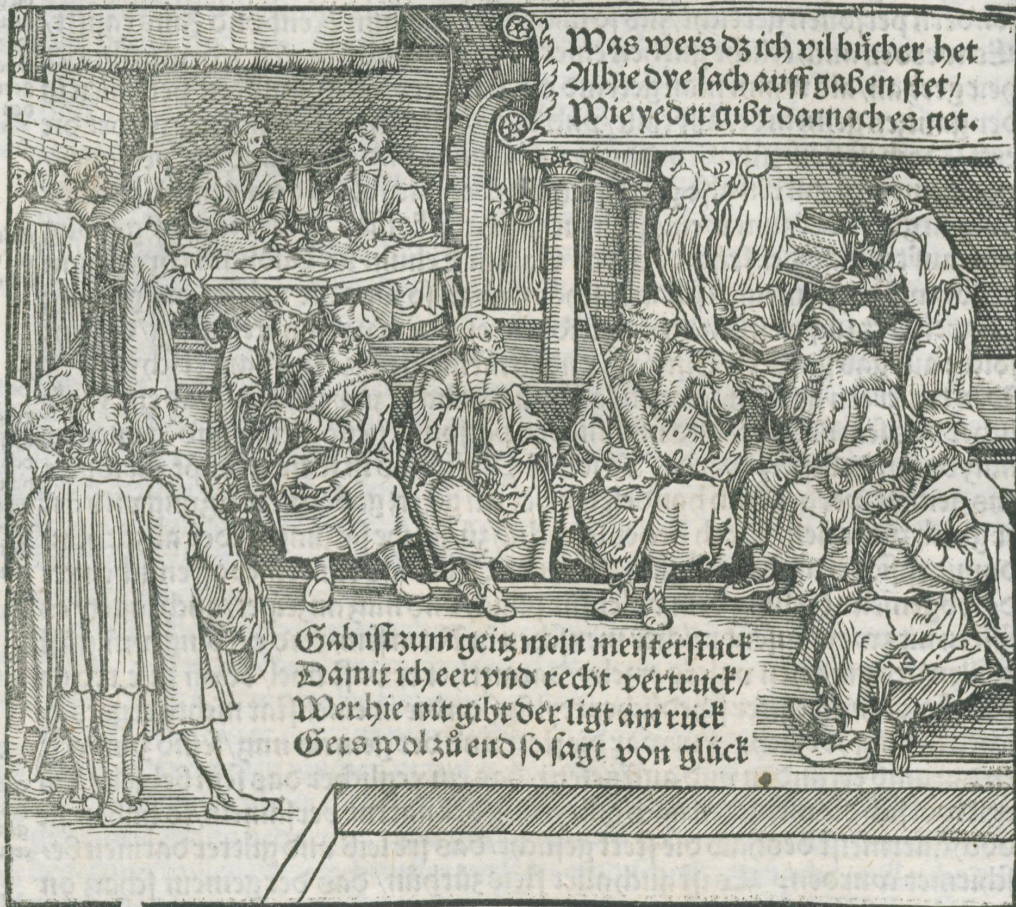 Was wers dz ich vil bůcher het
Alhie dye sach auff gaben stet/
Wie yeder gibt darnach es get.
Gab ist zum geitz mein meisterstuck
Damit ich eer vnd recht vertruck/
Wer hie nit gibt der ligt am ruck
Gets wol zů end so sagt von glück